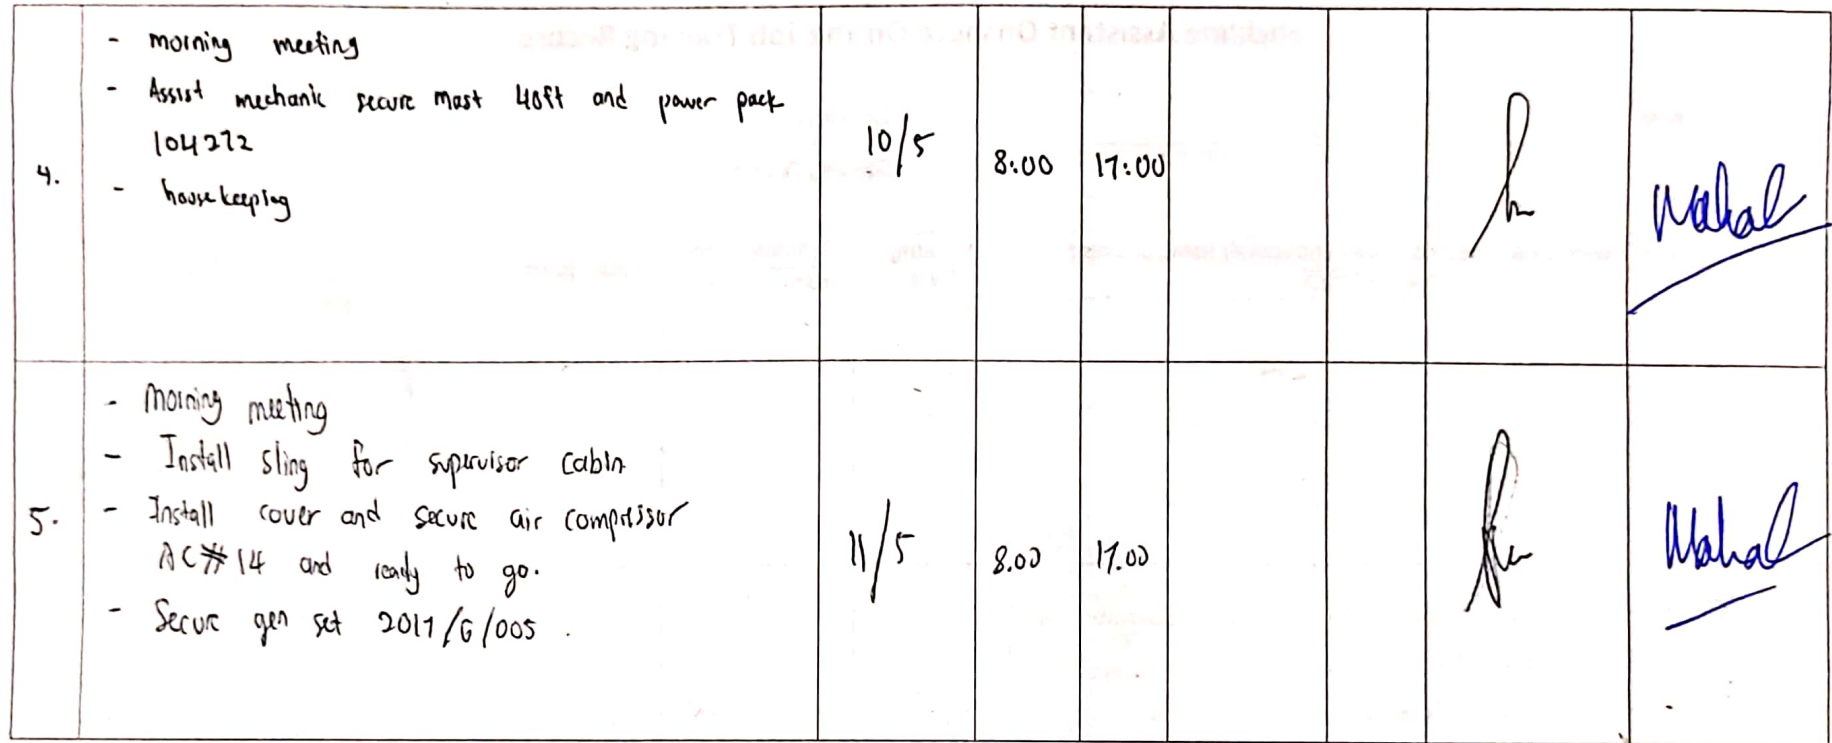 4.
- morning meeting
- Assist mechanic secure mast 40ft and power pack
104272
- housekeeping
10/5
8:00
17:00
5.
- Morning meeting
- Install sling for supervisor cabin
- Install cover and secure air compressor
AC#14 and ready to go.
- Secure gen set 2017/G/005.
11/5
8.00
17.00